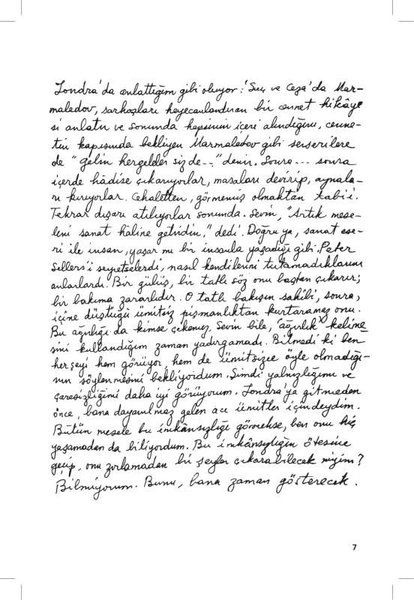 Londra'da anlattığım gibi oluyor: Suç ve Ceza'da Mar-
maladov, sarhoşları heyecanlandıran bir cennet hikâye
si anlatır ve sonunda hepsinin içeri alındığını, cenne-
tin kapısında bekliyen Marmaladov gibi serserilere
de "gelin hergeleler siz de..." denir. Sonra... sonra
içerde hâdise çıkarıyorlar, masaları devirip, aynala-
rı kırıyorlar. Cehaletten, görmemiş olmaktan tabi'i.
Tekrar dışarı atılıyorlar sonunda. Sevin, "Artık mese-
leni sanat hâline getirdin." dedi. Doğru ya, sanat ese-
ri ile insan, yaşar mı bir insanla yaşadığı gibi. Peter
Sellers'i seyretselerdi, nasıl kendilerini tutamadıklarını
anlarlardı. Bir gülüş, bir tatlı söz onu baştan çıkarır;
bir bakıma zararlıdır. O tatlı bakışın sahibi, sonra,
içine düştüğü ümitsiz pişmanlıktan kurtaramaz onu.
Bu ağırlığı da kimse çekemez. Sevin bile, "ağırlık" kelime
sini kullandığım zaman yadırgamadı. Bitmedi ki ben
herşeyi hem görüyor, hem de ümitsizce öyle olmadığı-
nın söylenmesini bekliyordum. Şimdi yalnızlığımı ve
çaresizliğimi daha iyi görüyorum. Londra'ya gitmeden
önce, bana dayanılmaz gelen acı ümitler içindeydim.
Bütün mesele bu imkânsızlığı görmekse, ben onu hiç
yaşamadan da biliyordum. Bu imkânsızlığın ötesine
geçip, onu zorlamadan bir şeyler çıkarabilecek miyim?
Bilmiyorum. Bunu, bana zaman gösterecek.
7